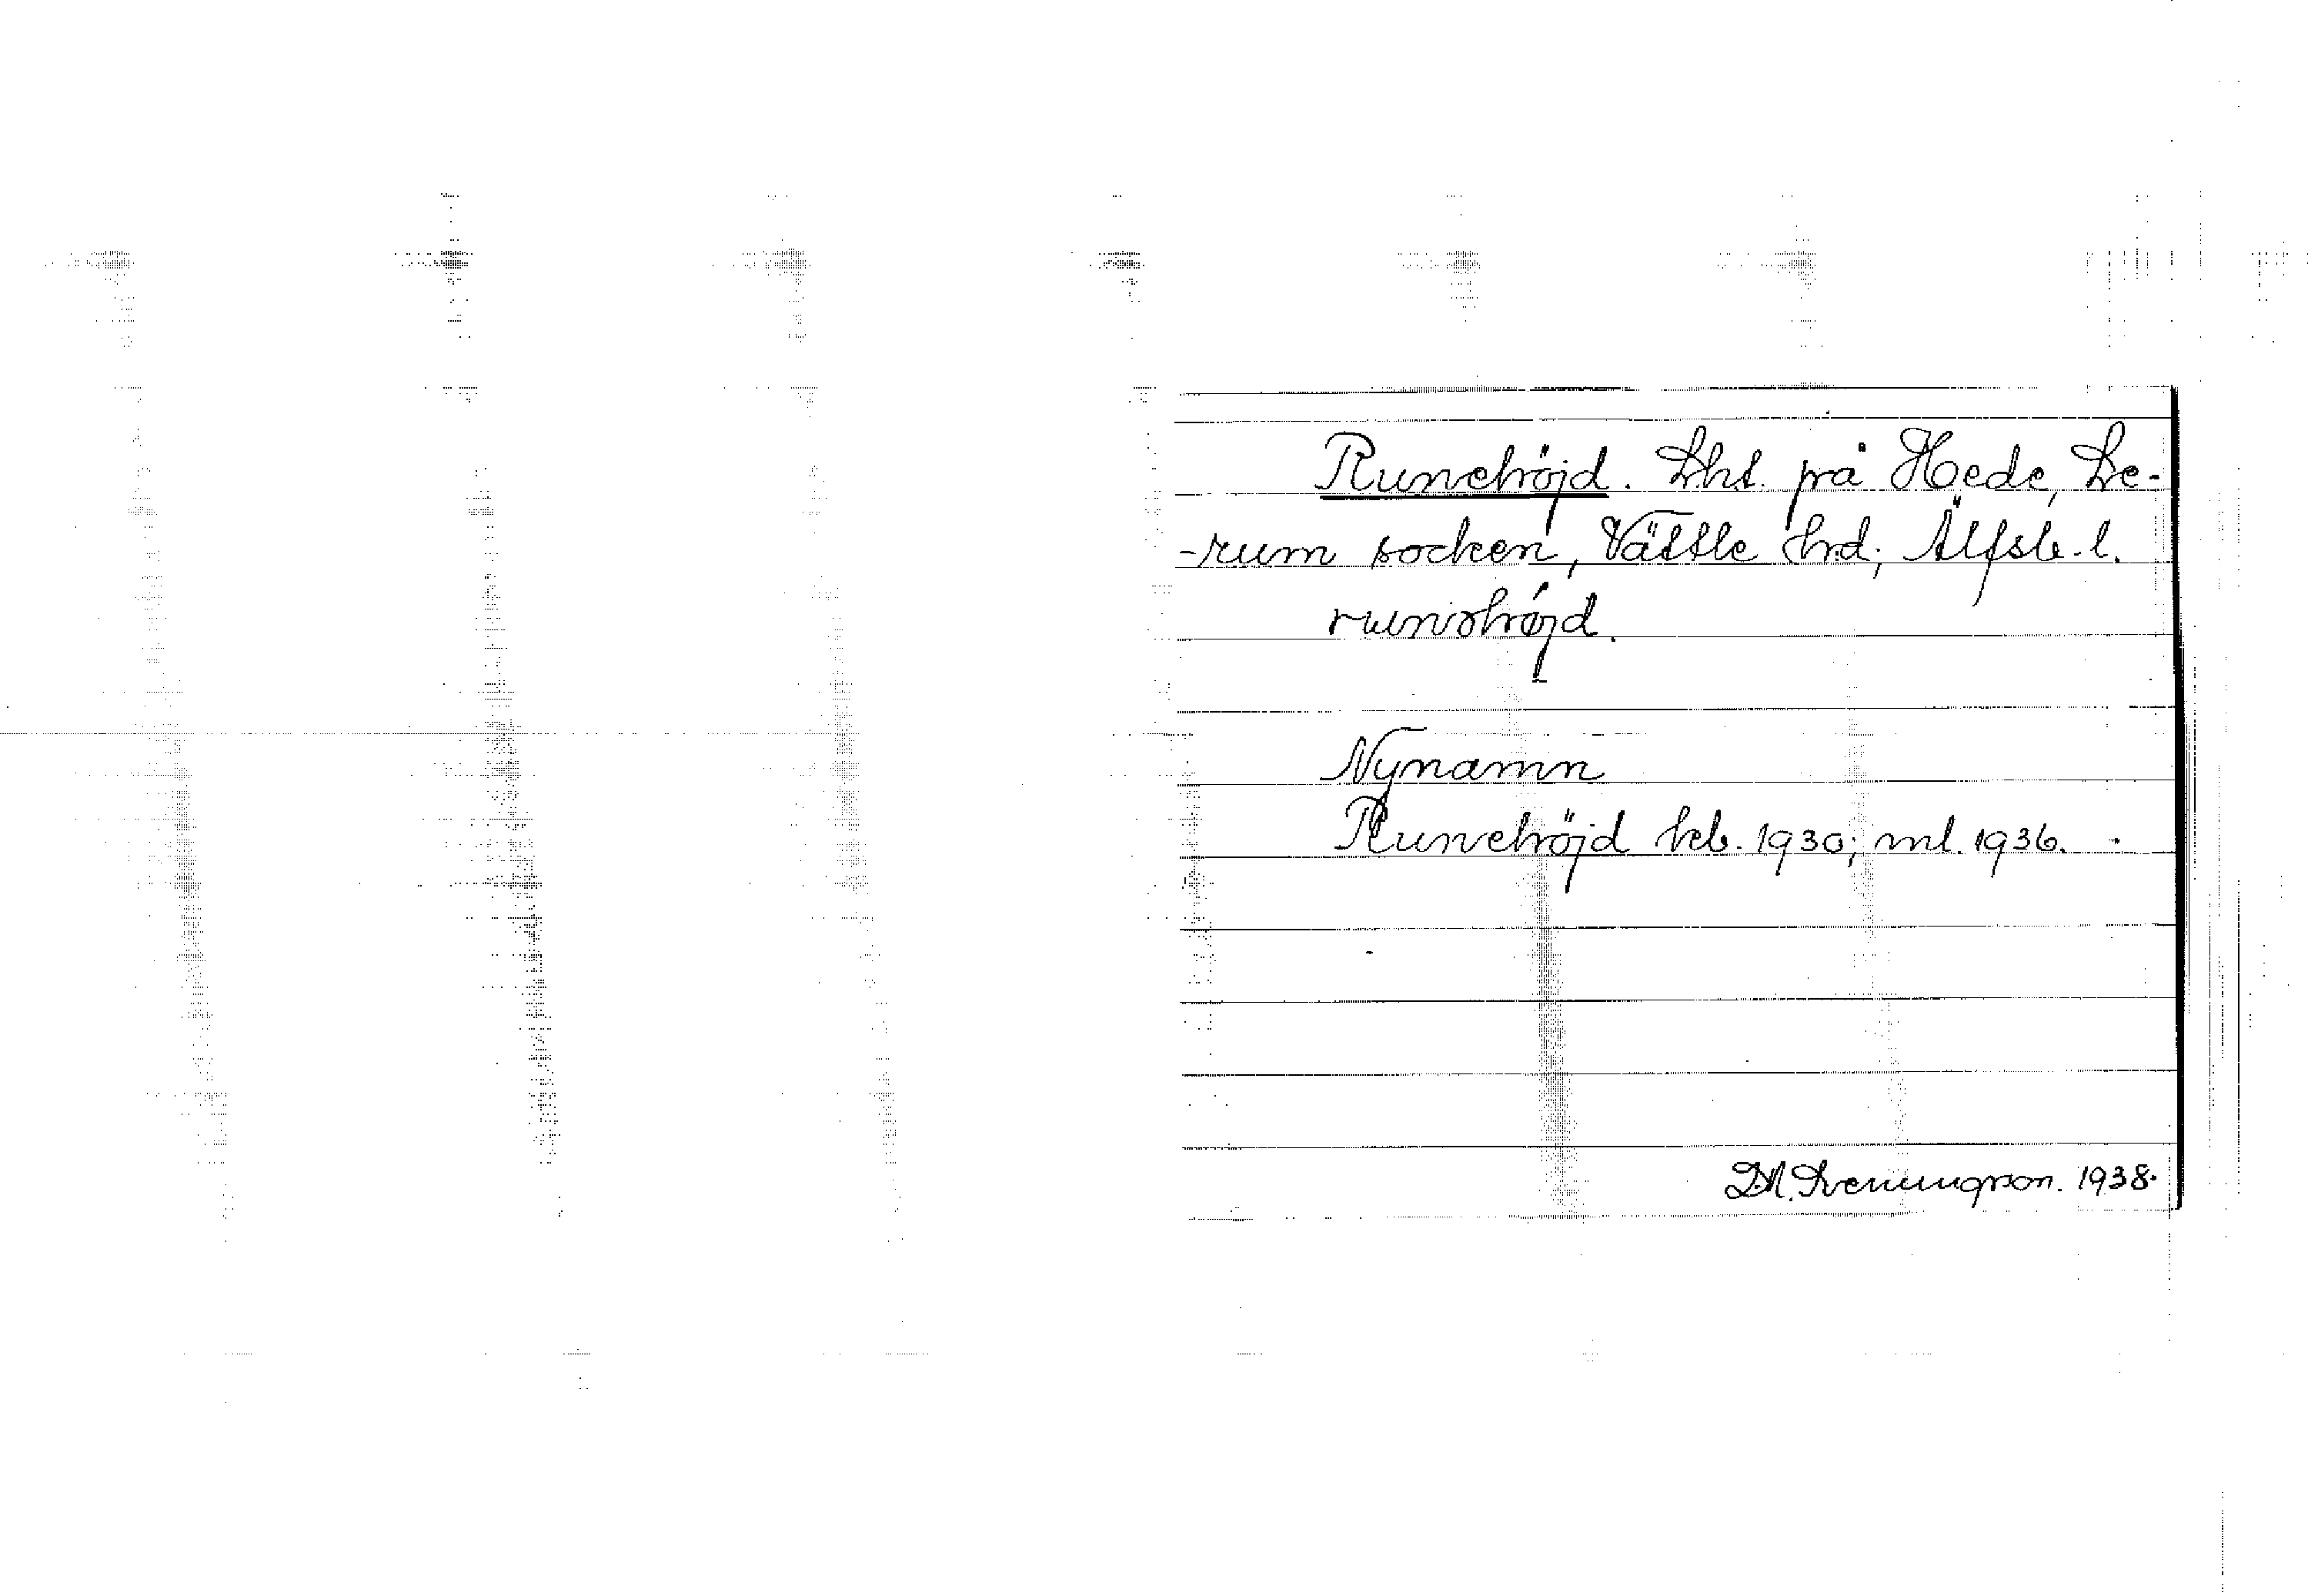 Runehöjd. Lht. på Hede, Le-
-rum socken, Vättle hrd; Älfsb. l.
runəhǿjd.
Nynamn
Runehöjd hcb. 1930; ml. 1936.
D.A. Sveningson. 1938.